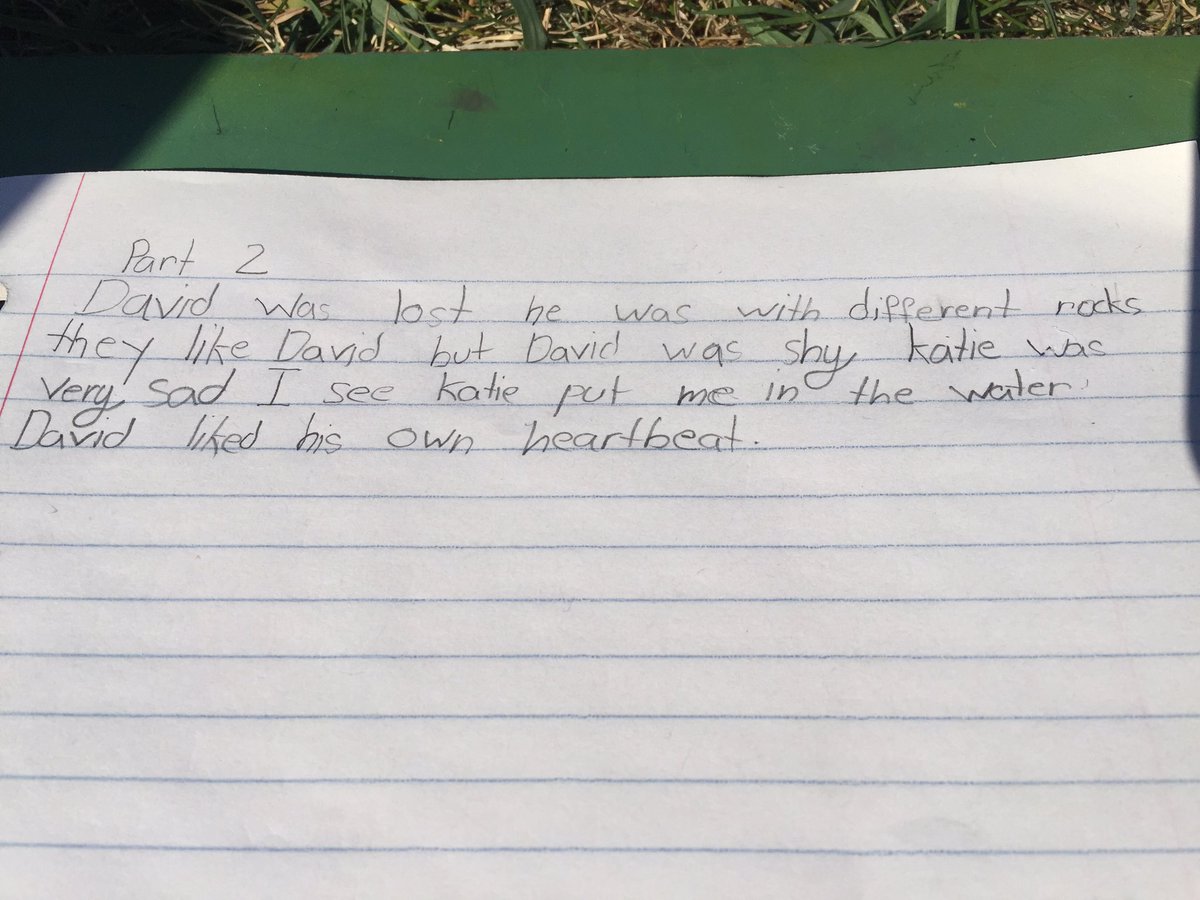 Part 2
David was lost he was with different rocks
they like David but David was shy katie was
very sad I see katie put me in the water.
David liked his own heartbeat.